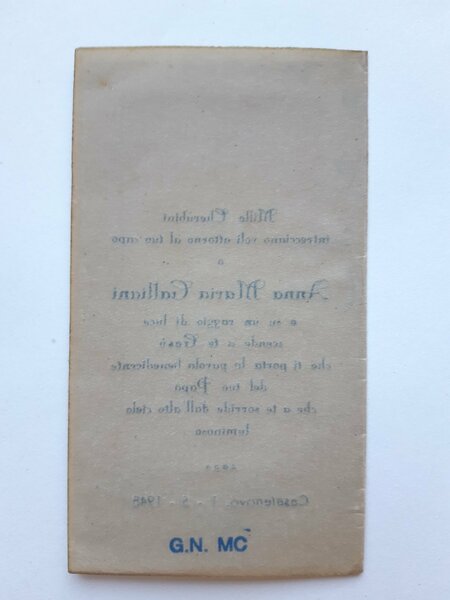 Mille Cherubini
intrecciano voli attorno al tuo capo
o
Anna Maria Galliani
e su un raggio di luce
scende a te Gesù
che ti porta la parola benedicente
del tuo Papà
che a te sorride dall'alto cielo
luminoso
Casatenovo, 1 - 5 - 1948
G.N. MC